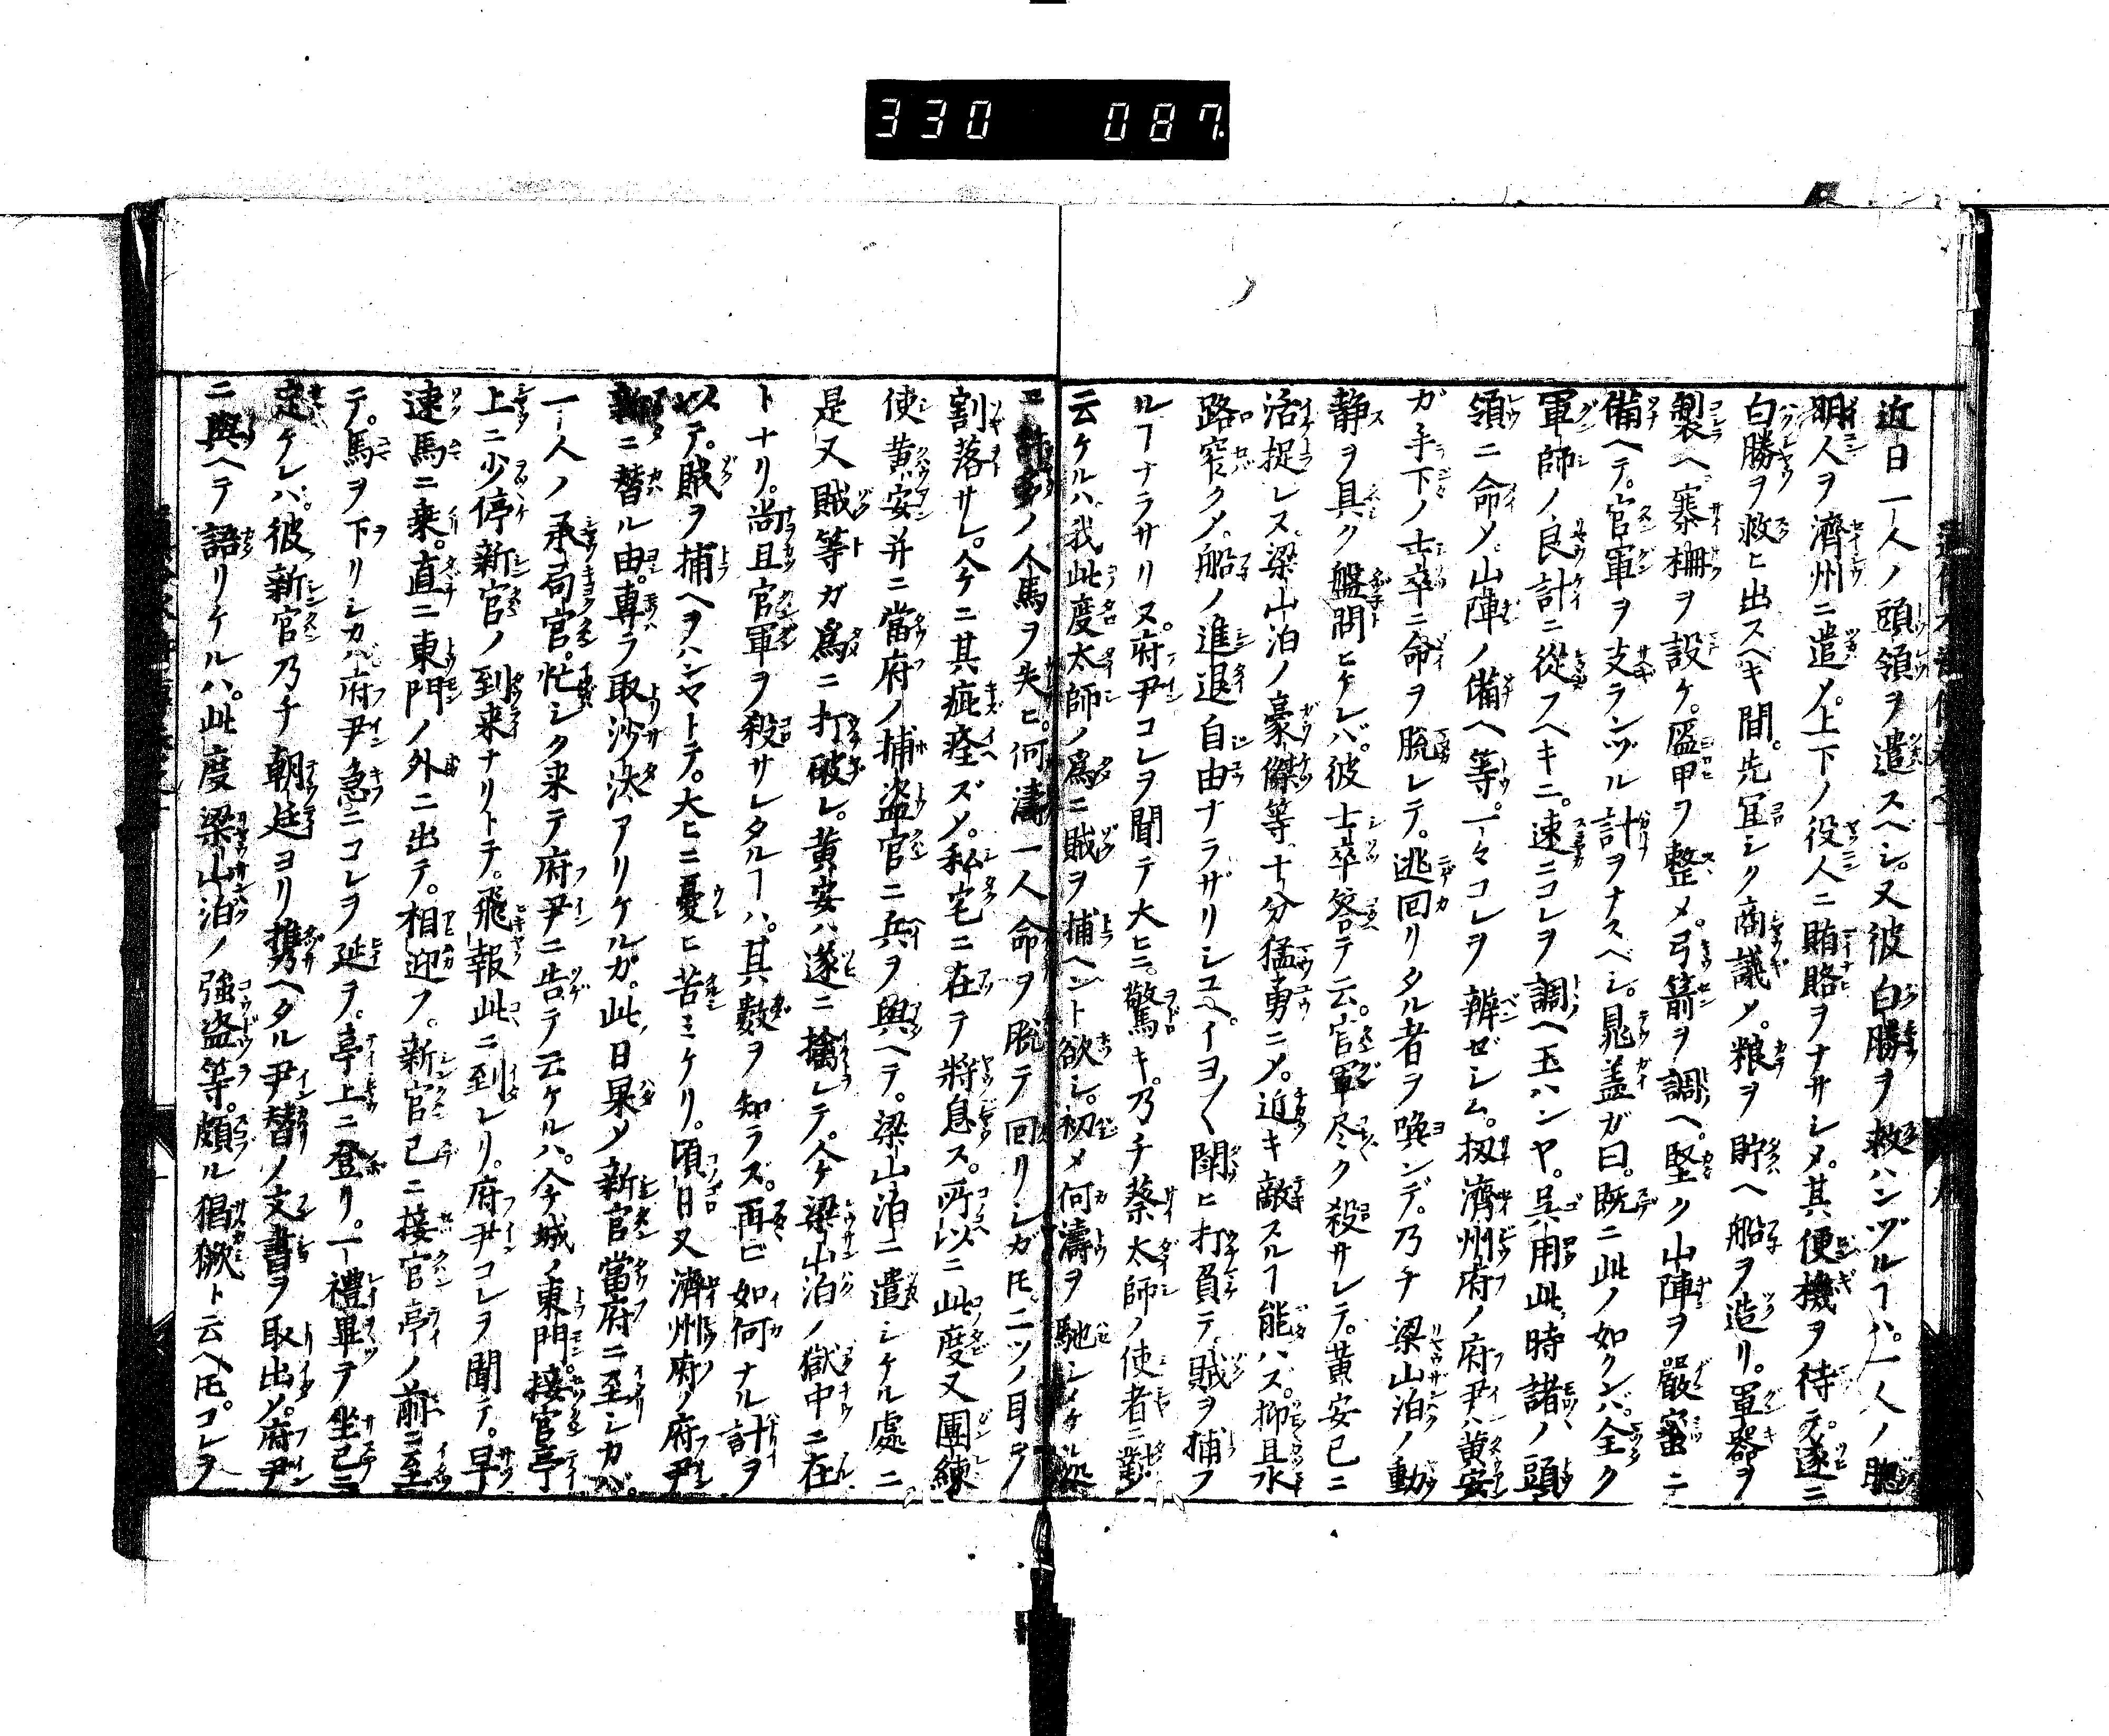 330 087
近日一人ノ頭領ヲ遣スベシ。又彼白勝ヲ救ハンヅルヿハ。一人ノ聰
明人ヲ濟州ニ遣メ。上下ノ役人ニ賄賂ヲナサシメ。其便機ヲ待テ。遂ニ
白勝ヲ救ヒ出スヘキ間。先冝シク商議メ。粮ヲ貯ヘ船ヲ造リ。軍器ヲ
製ヘ。寨柵ヲ設ケ。盔甲ヲ整メ。弓箭ヲ調ヘ。堅ク山陣ヲ嚴宻ニ
備ヘテ。官軍ヲ支ランヅル計ヲナスベシ。晁盖ガ曰。既ニ此ノ如クンバ。全ク
軍師ノ良計ニ從フヘキニ。速ニコレヲ調ヘ玉ハンヤ。呉用此時諸ノ頭
領ニ命メ。山陣ノ備ヘ等。一々コレヲ辨ゼシム。扨濟州府ノ府尹ハ黄安
ガ手下ノ士卒ニ命ヲ脱レテ。逃回リタル者ヲ喚ンデ。乃チ梁山泊ノ動
静ヲ具ク盤問ヒケレバ。彼士卒答テ云。官軍尽ク殺サレテ。黄安已ニ
活捉レヌ。梁山泊ノ豪傑等。十分猛勇ニメ。近キ敵スルヿ能ハズ。抑且水
路窄クメ。船ノ進退自由ナラザリシユヘ。イヨ〱鬪ヒ打負テ。賊ヲ捕フ
ルヿナラサリヌ。府尹コレヲ聞テ大ヒニ驚キ。乃チ蔡太師ノ使者ニ對
云ケルハ。我此度太師ノ爲ニ賊ヲ捕ヘント欲シ。初メ何濤ヲ馳シメケ
許多ノ人馬ヲ失ヒ。何濤一人命ヲ脱テ回リシガ𪜈。二ツノ耳ヲ
割落サレ。今ニ其疵痊ズメ。私宅ニ在テ將息ス。所以ニ此度又團練
使黄安并ニ當府ノ捕盗官ニ兵ヲ與ヘテ。梁山泊ニ遣シケル處ニ。
是又賊等ガ爲ニ打破レ。黄安ハ遂ニ擒レテ。今梁山泊ノ獄中ニ在
トナリ。尚且官軍ヲ殺サレタルヿハ。其數ヲ知ラズ。再ビ如何ナル計ヲ
以テ。賊ヲ捕ヘヲハンヤトテ。大ヒニ憂ヒ苦ミケリ。頃日又濟州府ノ府尹
新ニ替ル由。専ラ取沙汰アリケルガ。此日果メ新官當府ニ至シカバ。
一人ノ承局官。忙シク来テ府尹ニ告テ云ケルハ。今城ノ東門。接官亭
上ニ少停新官ノ到来ナリトテ。飛報此ニ到レリ。府尹コレヲ聞テ。早
速馬ニ乗。直ニ東門ノ外ニ出テ。相迎フ。新官已ニ接官亭ノ前ニ至
テ。馬ヲ下リシカバ。府尹急ニコレヲ延テ。亭上ニ登リ。一禮畢ヲ坐已ニ
定ケレバ。彼新官乃チ朝廷ヨリ携ヘタル尹替ノ文書ヲ取出メ。府尹
ニ與ヘテ語リケルハ。此度梁山泊ノ強盗等。頗ル猖獗ト云ヘ𪜈。コレヲ